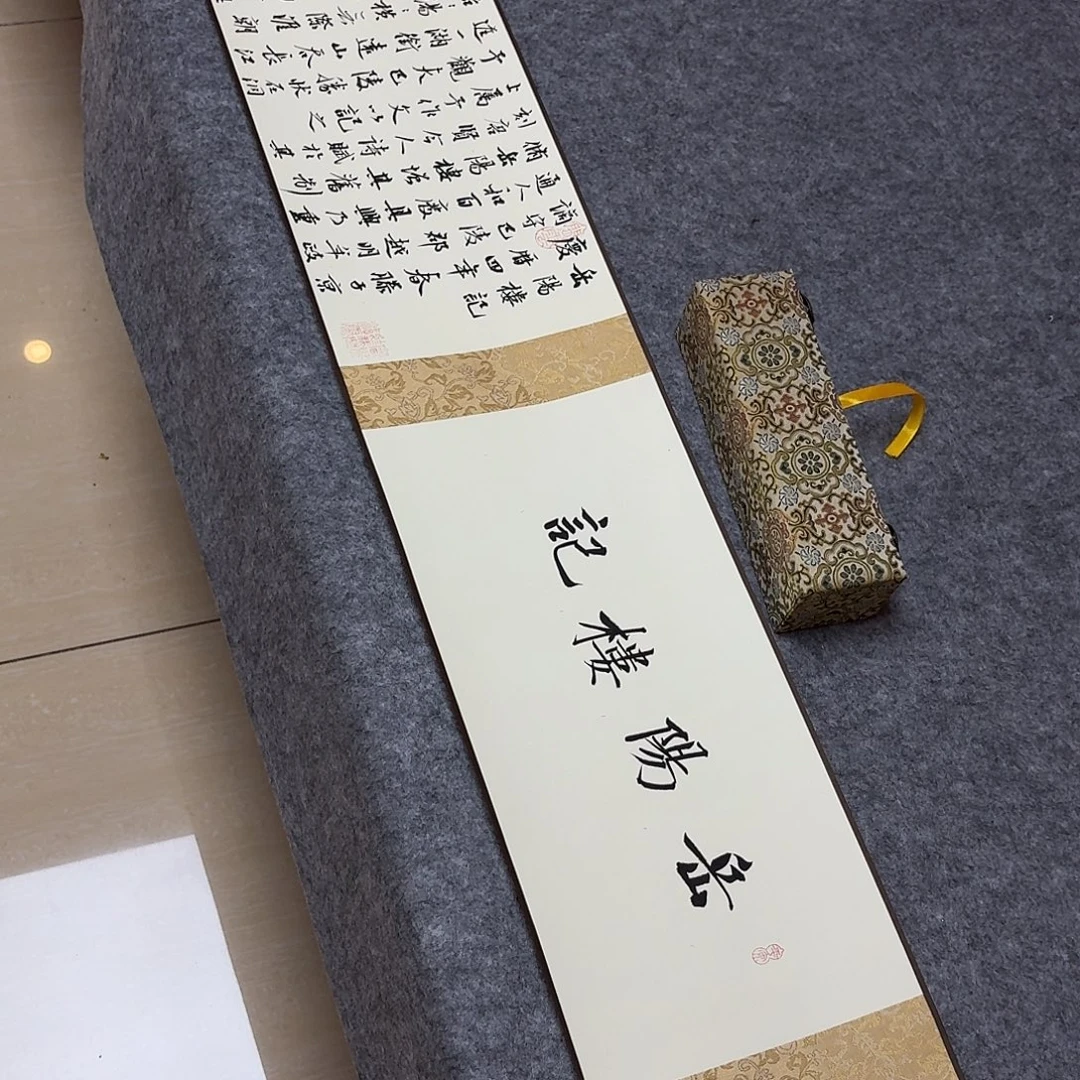 岳陽樓記
岳陽樓記
慶曆四年春滕子京
謫守巴陵郡越明年政
通人和百廢具興乃重
脩岳陽樓增其舊制
刻唐賢今人詩賦於其
上屬予作文以記之
予觀夫巴陵勝狀在洞
庭一湖銜遠山吞長江
湯橫無際涯朝